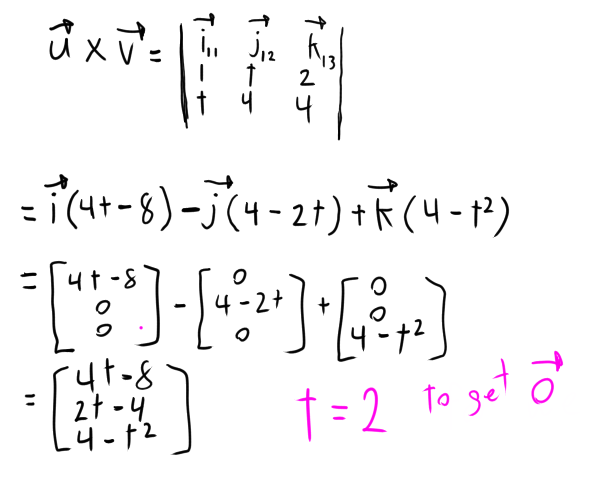 u⃗ × v⃗ = | i⃗₁₁ j⃗₁₂ k⃗₁₃ |
| 1 t 2 |
| t 4 4 |
= i⃗(4t-8) - j⃗(4-2t) + k⃗(4-t²)
= [4t-8 0 0] - [0 4-2t 0] + [0 0 4-t²]
= [4t-8 2t-4 4-t²]
t=2 to get 0⃗